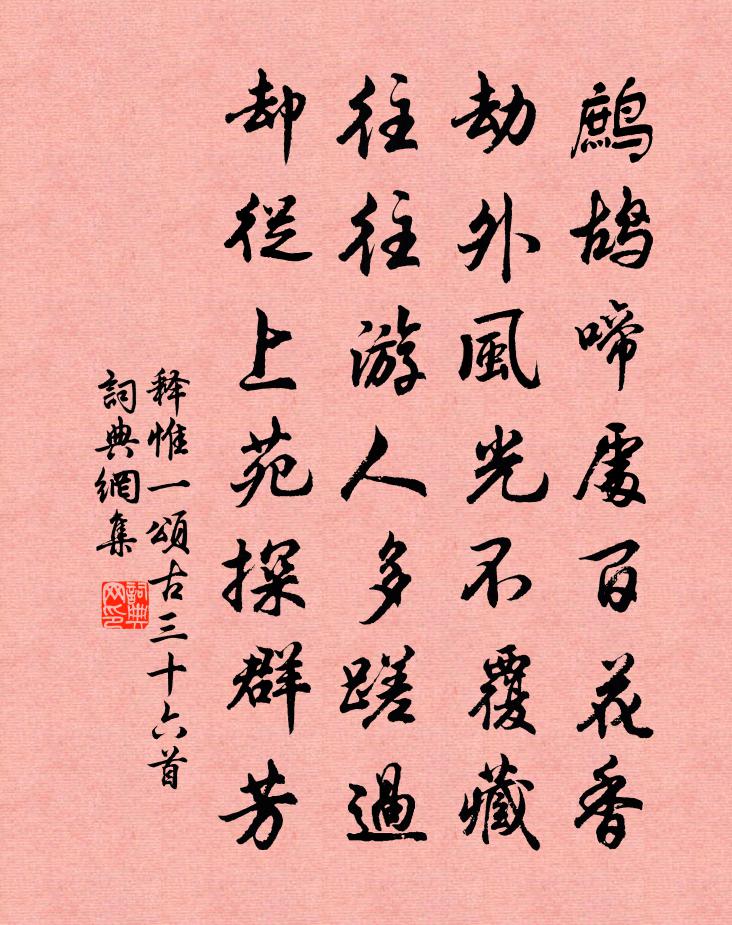 鷓鴣啼處百花香
劫外風光不覆藏
往往游人多蹉過
却從上苑探群芳
释惟一頌古三十六首
詞典網集
詞典网印